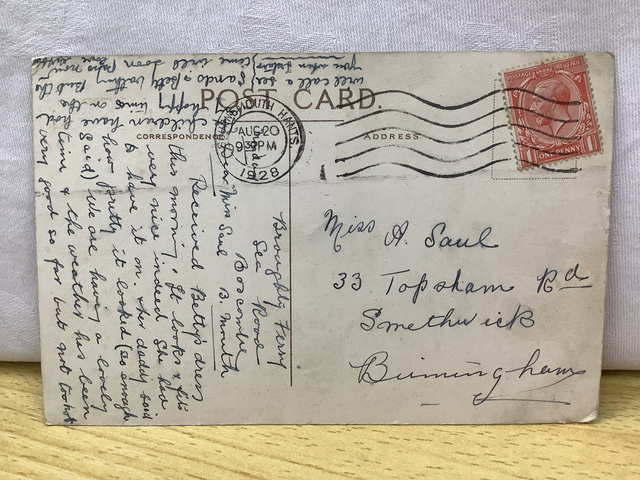 POST CARD.
CORRESPONDENCE
ADDRESS.
BOURNEMOUTH HANTS.
AUG 20
930PM
1928
ONE PENNY
Miss A. Saul
33 Topsham Rd
Smethwick
Birmingham
Broughty Ferry
Sea Road
Boscombe
B. Mouth
Dear Miss Saul
Received Betty's dress
this morning. It looks & fits
very nice indeed She had
to have it on. Her daddy said
how Pretty it looked (as enough
said) We are having a lovely
time & the weather has been
very good so far but not too hot
children have had
happy times on the
Sands & Betty bathing But the
will call & see
come will soon
you when